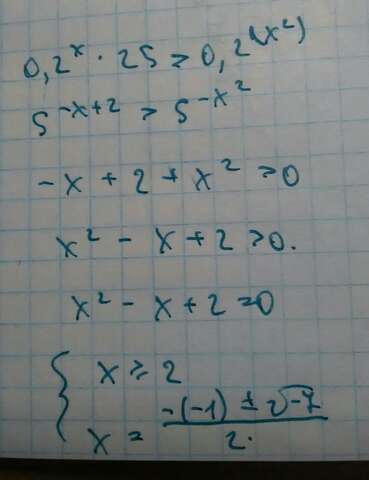 0,2^x · 25 ≥ 0,2^(x^2)
5^-x+2 > 5^-x^2
-x + 2 + x^2 ≥ 0
x^2 - x + 2 ≥ 0.
x^2 - x + 2 = 0
{ x ≥ 2
x = (-(-1) ± √-7) / 2.